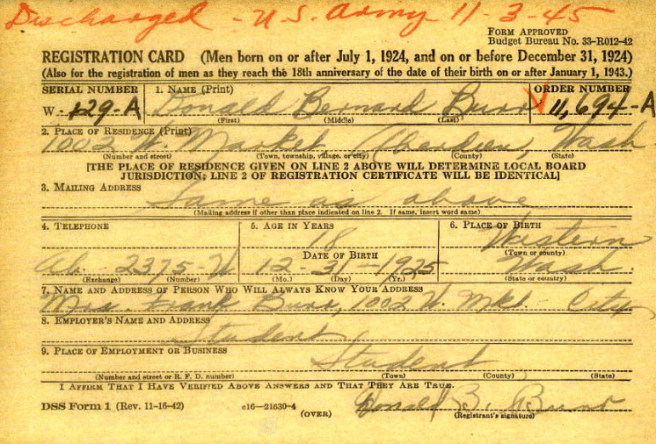 Discharged - U.S. Army 11-3-45
FORM APPROVED
Budget Bureau No. 33-R012-42
REGISTRATION CARD (Men born on or after July 1, 1924, and on or before December 31, 1924)
(Also for the registration of men as they reach the 18th anniversary of the date of their birth on or after January 1, 1943.)
SERIAL NUMBER 1. NAME (Print) ORDER NUMBER
W-129-A Donald Bernard Burr 11,694-A
(First) (Middle) (Last)
2. PLACE OF RESIDENCE (Print)
1002 W. Market, Aberdeen, Wash
(Number and street) (Town, township, village, or city) (County) (State)
[THE PLACE OF RESIDENCE GIVEN ON LINE 2 ABOVE WILL DETERMINE LOCAL BOARD
JURISDICTION; LINE 2 OF REGISTRATION CERTIFICATE WILL BE IDENTICAL]
3. MAILING ADDRESS
Same as above
(Mailing address if other than place indicated on line 2. If same, insert word same)
4. TELEPHONE 5. AGE IN YEARS 6. PLACE OF BIRTH
18 Western
DATE OF BIRTH (Town or county)
Ab 2375 W 12-31-1925 Wash.
(Exchange) (Number) (Mo.) (Day) (Yr.) (State or country)
7. NAME AND ADDRESS OF PERSON WHO WILL ALWAYS KNOW YOUR ADDRESS
Mrs. Frank Burr, 1002 W. Mkt. City
8. EMPLOYER'S NAME AND ADDRESS
Student
9. PLACE OF EMPLOYMENT OR BUSINESS
Student
(Number and street or R. F. D. number) (Town) (County) (State)
I AFFIRM THAT I HAVE VERIFIED ABOVE ANSWERS AND THAT THEY ARE TRUE.
DSS Form 1 (Rev. 11-16-42) c16—21630-4 Donald B. Burr
(OVER) (Registrant's signature)